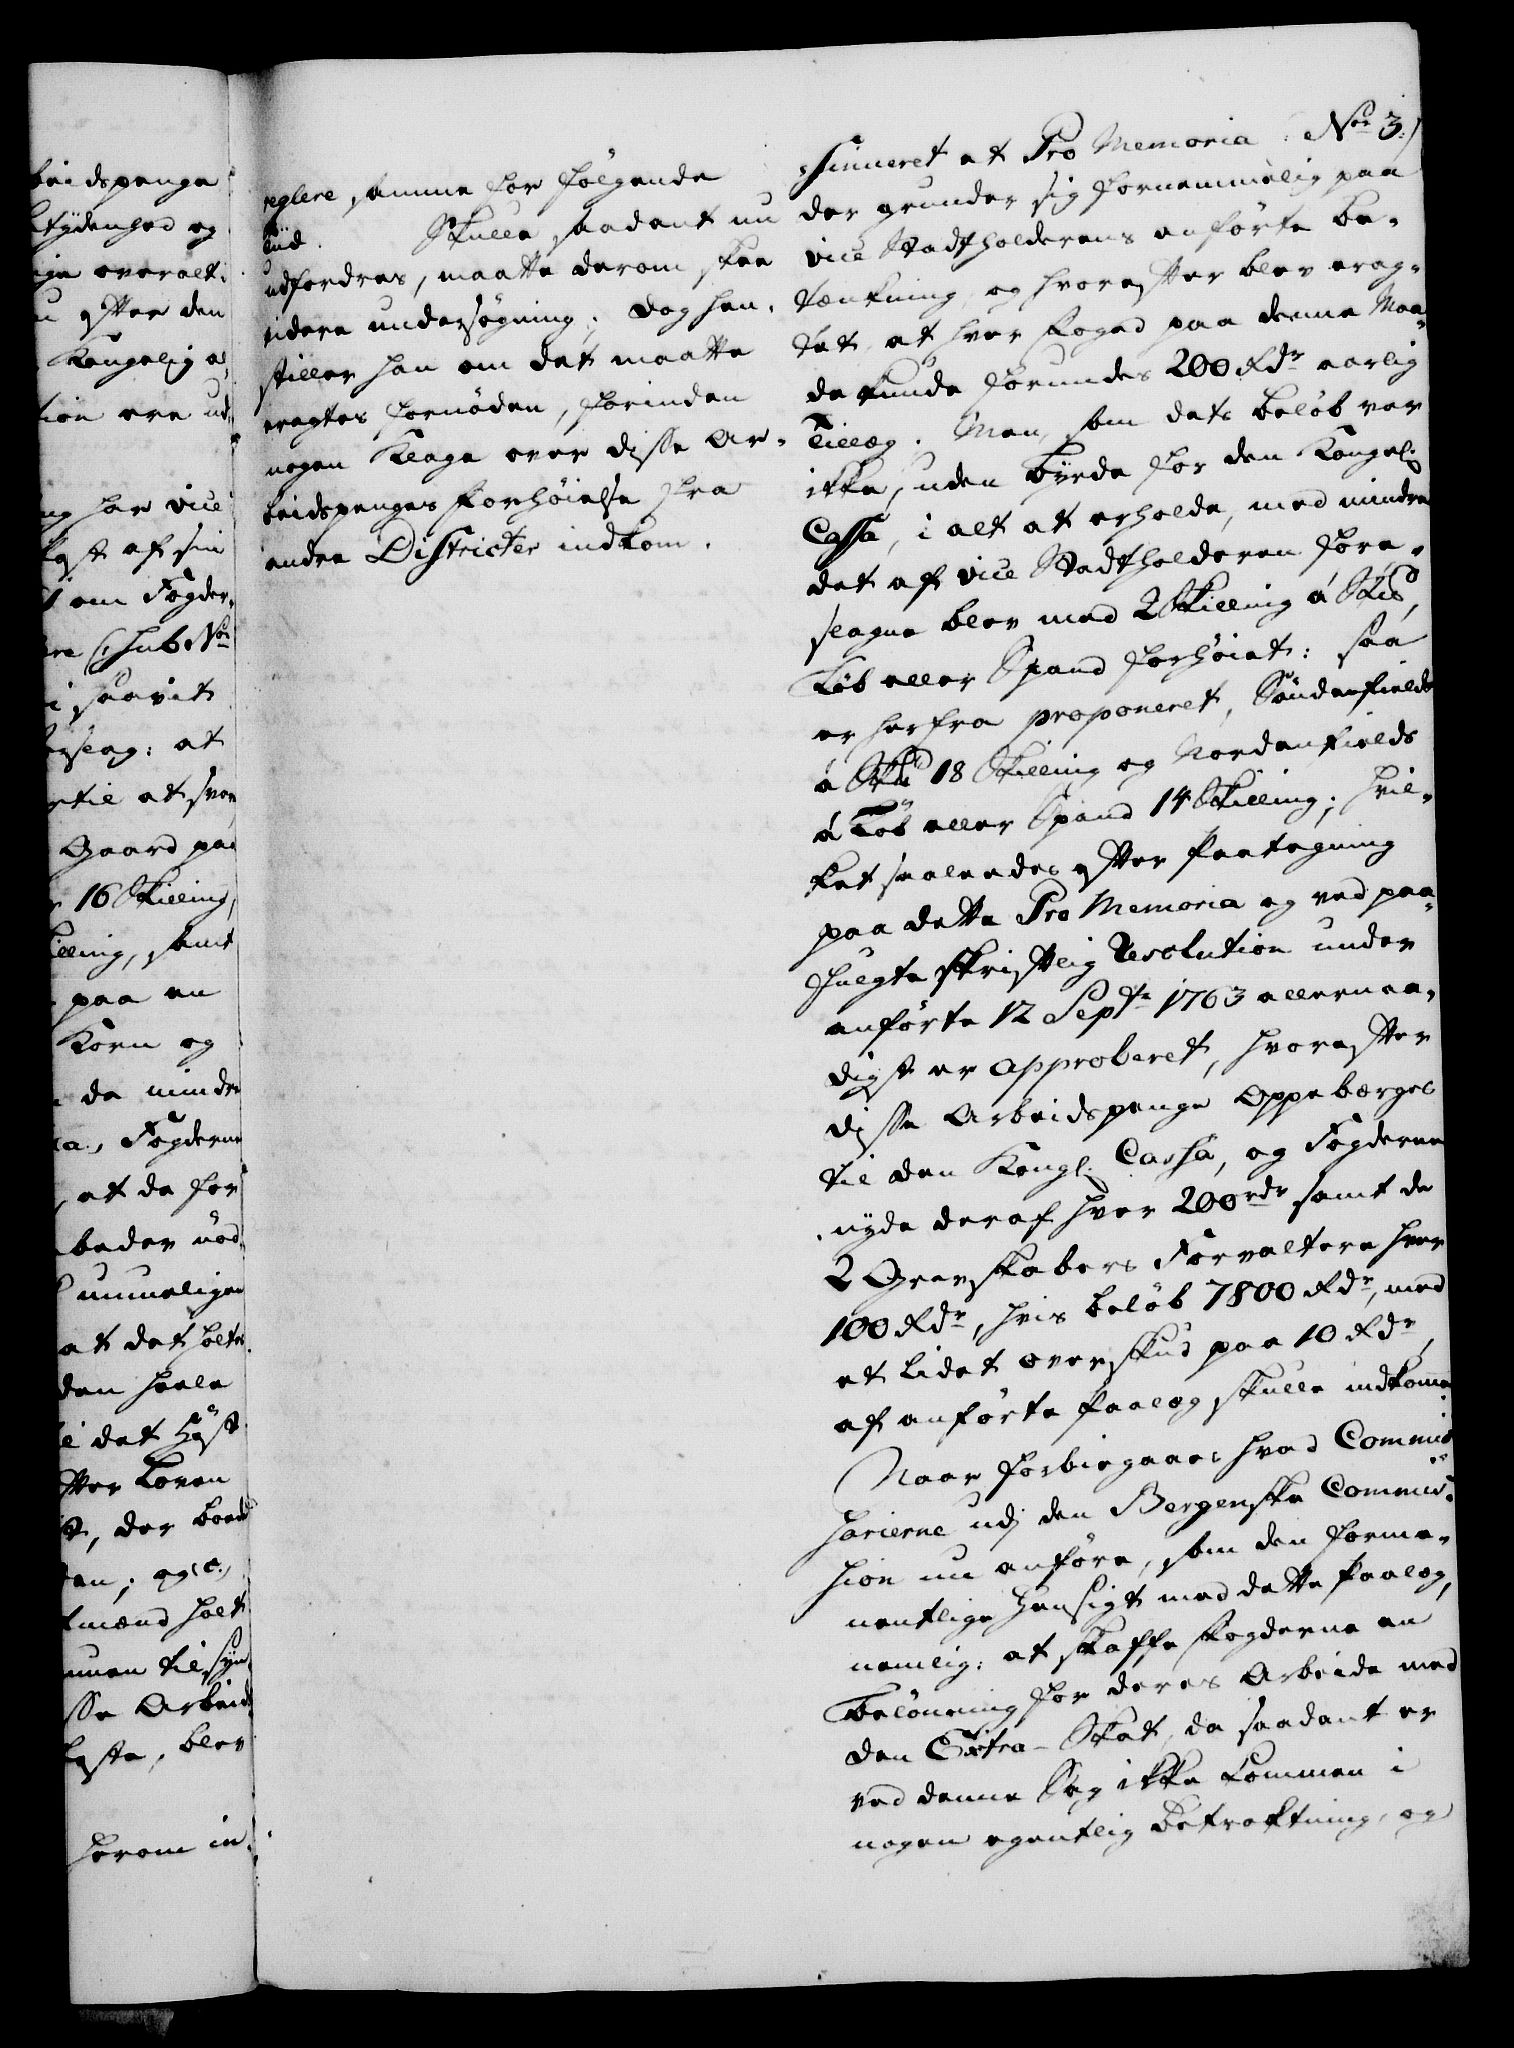 beidspenge
btydenhed og
overalt:
efter den
Kongelig
tion ere ud,
ng har vice
af sin
om Fogder,
sub No
i saavit
forslag: at
til at svare
Gaard paa
16 Skilling,
illing, samt
paa en
Korn og
da mindre
Fogderne
, at de for
beder
ummeligen
at det
den heele
det
efter Loven
, der
en; og
tmænd
unen til
sse Arbeid
, blev
herom in,
reglere samme for følgende
Tiid. Skulle saadant nu
udfordres, maatte derom skee
videre undersøgning; dog hen,
stiller han om det maatte
eragtes fornöden, forinden
nogen Klage over disse Ar,
beidspenges Forhöielse fra
andre Districter indkom.
sinueret et Pro Memoria No 3:/
der grunder sig fornemmelig paa
vice Stadtholderens anförte be,
tænkning, og hvorefter blev erag,
tet at hver Foged paa denne Maa,
de kunde forundes 200 Rdr aarlig
Tillæg. Men, som dets beløb var
ikke, uden byrde for den Kongel:
Cassa, i alt at erholde, med mindre
det af vice Stadtholderen fore,
slagne blev med 2 Skilling á Skd,
Löb eller Spand forhöiet: saa
er herfra proponeret, Söndenfields
á Skd 18 Skilling og Nordenfields
á Löb eller Spand 14 Skilling; hvil,
ket saaledes efter Paategning
paa dette Pro Memoria og ved paa,
fulgte skriftlig Resolution under
anförte 12 Septr 1763 allernaa,
digst er approberet, hvorefter
disse Arbeidspenge Oppebærges
til den Kongl: Cassa, og Fogderne
nyde deraf hver 200 rdr samt de
2 Grevskabers Forvaltere hver
100 Rdr, hvis beløb 7800 Rdr, med
et lidet overskud paa 10 Rdr,
af anförte Paalæg skulle indkomme.
Naar forbiegaaes hvad Commis
sarierne udj den Bergenske Commis,
sion nu anföre, som den forme,
nentlige Hensigt med dette Paalæg,
nemlig: at skaffe Fogderne en
belönning for deres Arbeide med
den Extra-Skat, da saadant er
ved denne Sag ikke kommen i
nogen egentlig Betragtning, og